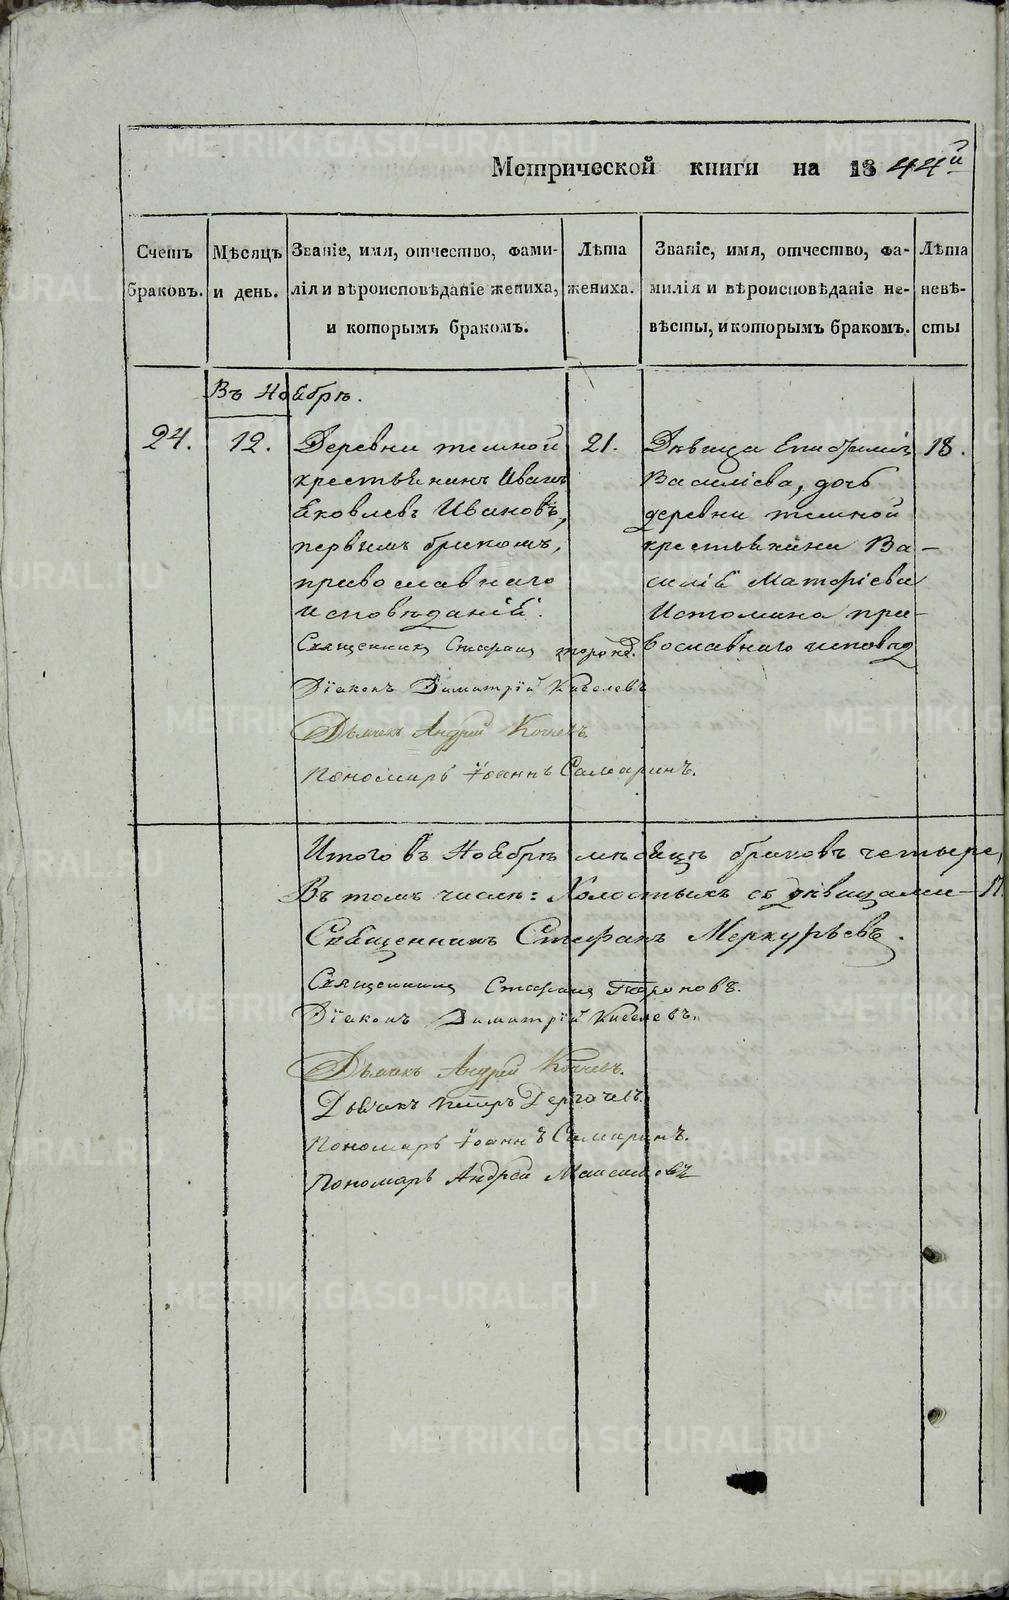 Метрической книги на 1844й
Счетъ браковъ.
Мѣсяцъ и день.
Званіе, имя, отчество, фами-
лія и вѣроисповѣданіе жениха,
и которымъ бракомъ.
Лѣта жениха.
Званіе, имя, отчество, фа-
милія и вѣроисповѣданіе не-
вѣсты, и которымъ бракомъ.
Лѣта невѣ-
сты
Въ Ноябрѣ.
24.
12.
Деревни темной
крестьянинъ Иванъ
Яковлевъ Ивановъ,
первымъ бракомъ,
православнаго
исповѣданія.
21.
Дѣвица
Василіева, дочь
деревни темной
крестьянина Ва-
силія Матфіева
Истомина пра-
вославнаго исповѣд
18.
Священникъ Стефанъ
Діаконъ Димитрій Киселевъ
Дьячекъ Андрей
Пономарь Іоаннъ Самаринъ.
Итого въ Ноябрѣ мѣсяцѣ браковъ четыре,
Въ томъ числѣ: Холостыхъ съ дѣвицами -
Священникъ Стефанъ Меркурьевъ.
Священникъ Стефанъ
Діаконъ Димитрій Киселевъ.
Дьячекъ Андрей
Дьячекъ Петръ Дергачевъ.
Пономарь Іоаннъ Самаринъ.
Пономарь Андрей
METRIKI.GASO-URAL.RU